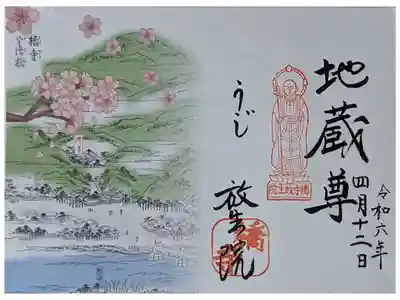 令和六年
四月十二日
地蔵尊
橋寺放生院
うじ
放生院
橋寺